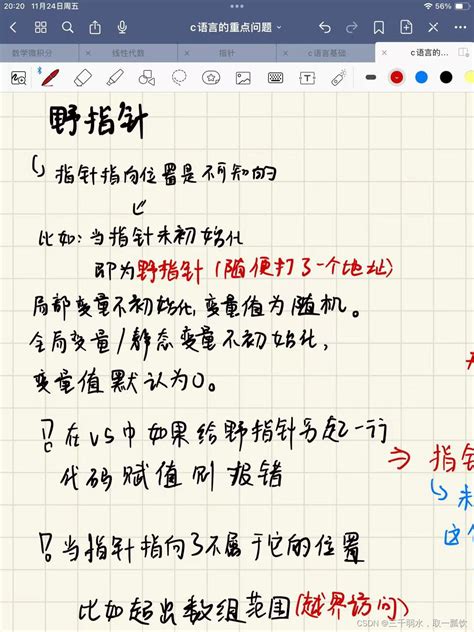 20:20 11月24日周五
56%
c语言的重点问题
数学微积分
线性代数
指针
c语言基础
c语言的...
野指针
指针指向位置是不可知的
比如:当指针未初始化
即为野指针(随便打了一个地址)
局部变量不初始化,变量值为随机。
全局变量/静态变量不初始化,
变量值默认为0。
在VS中如果给野指针另起一行
代码赋值则报错
⇒ 指针
未
这个
当指针指向了不属于它的位置
比如超出数组范围(越界访问)
CSDN @三千明水,取一瓢饮